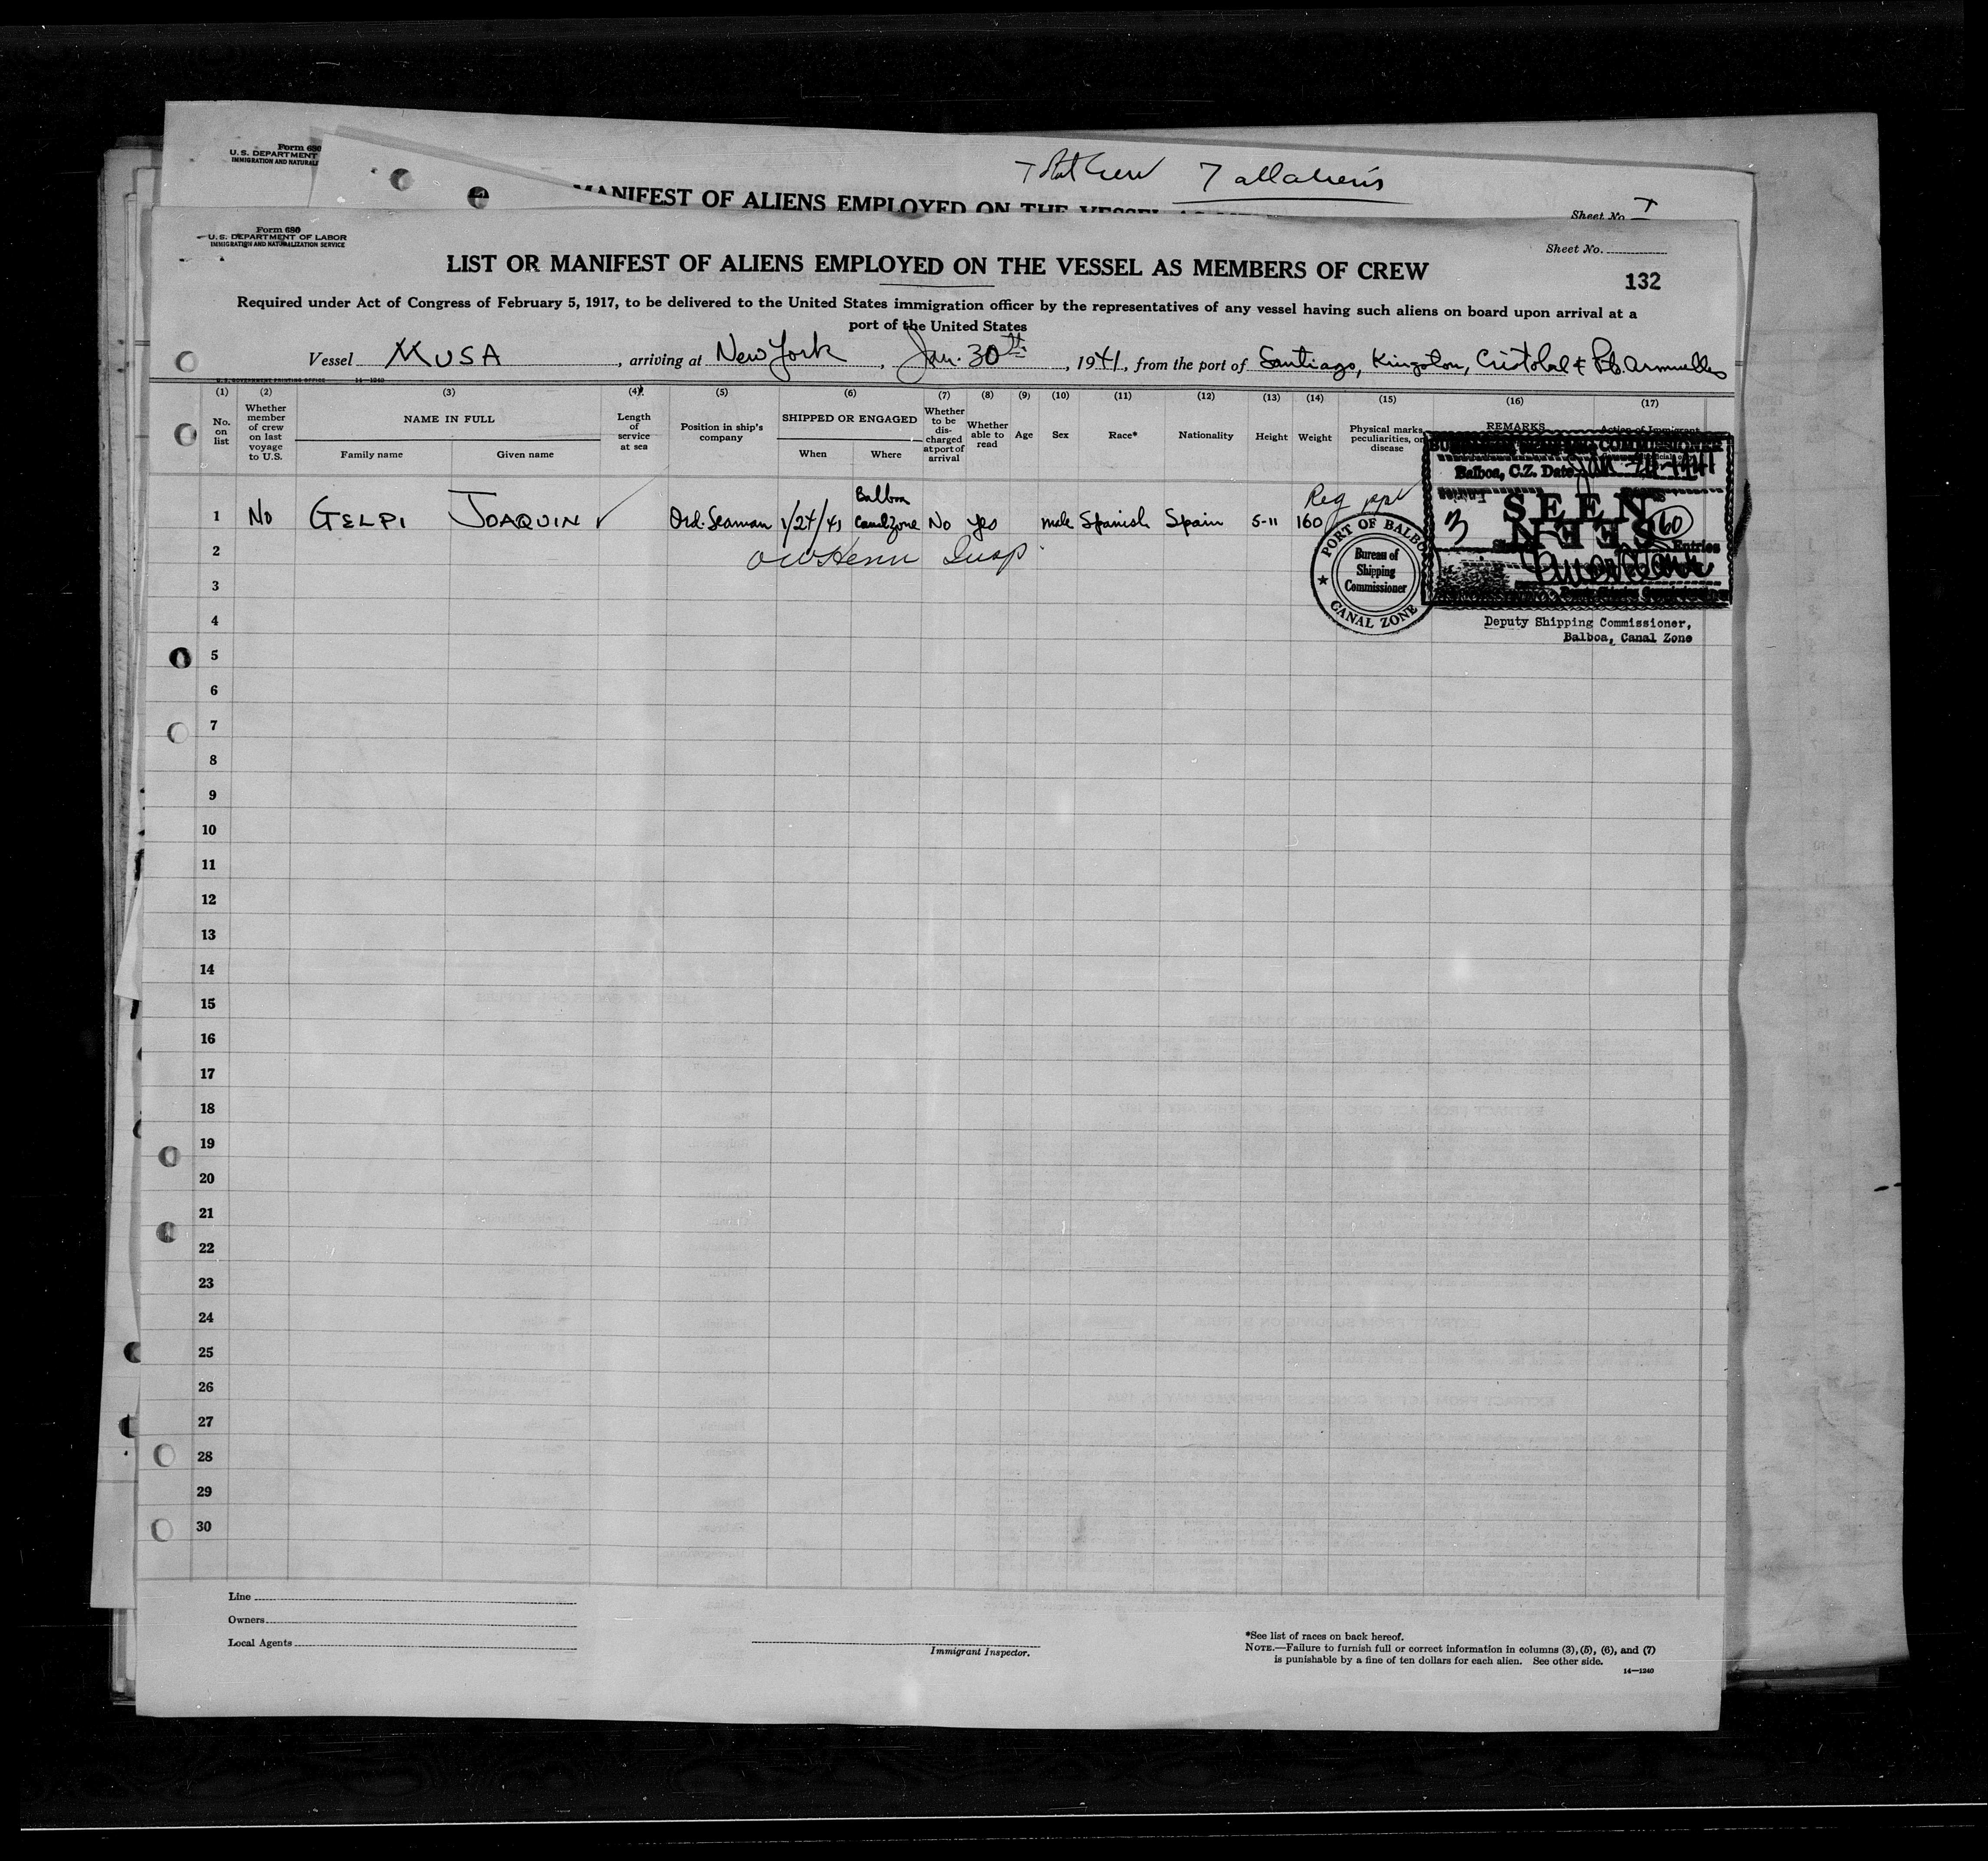 Form 680
U. S. DEPARTMENT
IMMIGRATION AND NATURALI
Total Crew 7 all aliens
MANIFEST OF ALIENS EMPLOYED ON THE VESSEL AS
Sheet No. 1
Form 680
U. S. DEPARTMENT OF LABOR
IMMIGRATION AND NATURALIZATION SERVICE
Sheet No.
LIST OR MANIFEST OF ALIENS EMPLOYED ON THE VESSEL AS MEMBERS OF CREW
132
Required under Act of Congress of February 5, 1917, to be delivered to the United States immigration officer by the representatives of any vessel having such aliens on board upon arrival at a
port of the United States
Vessel MUSA, arriving at New York, Jan. 30th, 1941, from the port of Santiago, Kingston, Cristobal & Pto. Armuelles
U. S. GOVERNMENT PRINTING OFFICE 14—1240
(1) (2) (3) (4) (5) (6) (7) (8) (9) (10) (11) (12) (13) (14) (15) (16) (17)
No. on list
Whether member of crew on last voyage to U.S.
NAME IN FULL
Family name
Given name
Length of service at sea
Position in ship's company
SHIPPED OR ENGAGED
When
Where
Whether to be discharged at port of arrival
Whether able to read
Age
Sex
Race*
Nationality
Height
Weight
Physical marks, peculiarities, or disease
REMARKS
Action of Immigrant
Balboa, C.Z. Date Jan 1941
Reg ppt
1 No GELPI JOAQUIN ✓ Ord. Seaman 1/24/41 Balboa Canal Zone No Yes male Spanish Spain 5-11 160
SEEN
3
60
Entries
Insp.
PORT OF BALBOA
Bureau of
Shipping
Commissioner
★ CANAL ZONE
Deputy Shipping Commissioner,
Balboa, Canal Zone
2
3
4
5
6
7
8
9
10
11
12
13
14
15
16
17
18
19
20
21
22
23
24
25
26
27
28
29
30
Line
Owners
Local Agents
Immigrant Inspector.
*See list of races on back hereof.
NOTE.—Failure to furnish full or correct information in columns (3), (5), (6), and (7)
is punishable by a fine of ten dollars for each alien. See other side.
14—1240